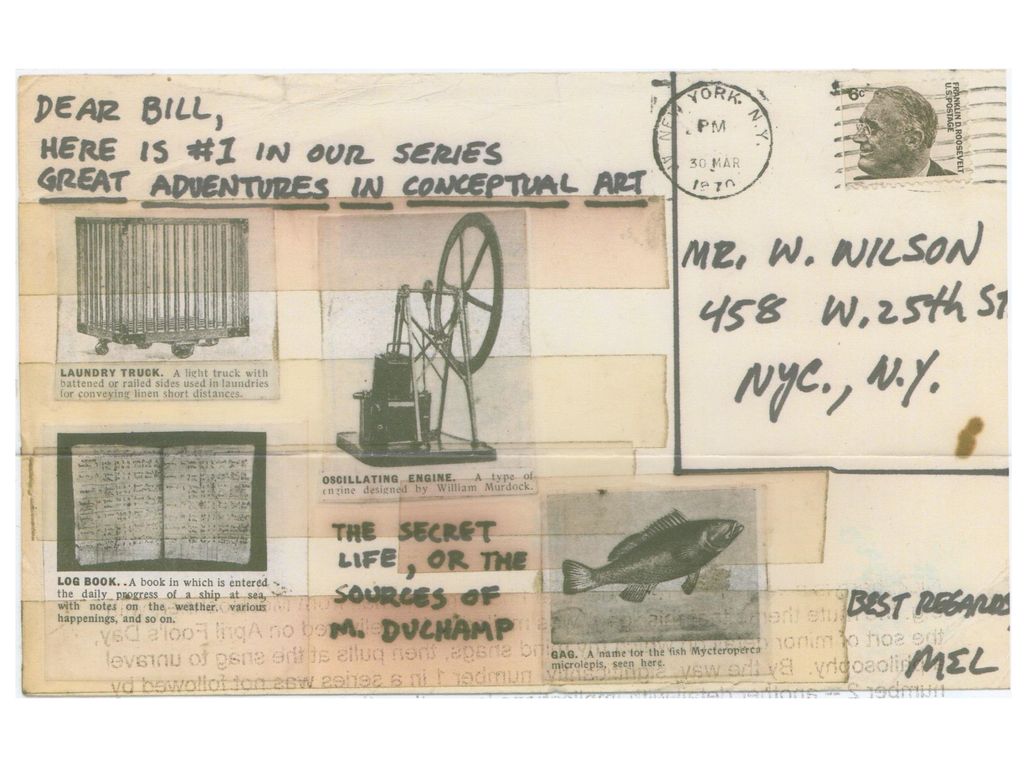 DEAR BILL,
HERE IS #1 IN OUR SERIES
GREAT ADVENTURES IN CONCEPTUAL ART
NEW YORK, N.Y.
PM
30 MAR
1970
6c
FRANKLIN D. ROOSEVELT
U.S. POSTAGE
MR. W. WILSON
458 W. 25th ST
NYC., N.Y.
LAUNDRY TRUCK. A light truck with
battened or railed sides used in laundries
for conveying linen short distances.
OSCILLATING ENGINE. A type of
engine designed by William Murdock.
LOG BOOK. . A book in which is entered
the daily progress of a ship at sea,
with notes on the weather, various
happenings, and so on.
THE SECRET
LIFE, OR THE
SOURCES OF
M. DUCHAMP
GAG. A name for the fish Mycteroperca
microlepis, seen here.
BEST REGARDS
MEL
delivered on April Fool's Day,
the sort of minor
and snags, then pulls at the snag to unravel
philosophy. By the way, significantly, number 1 in a series was not followed by
number 2 -- another